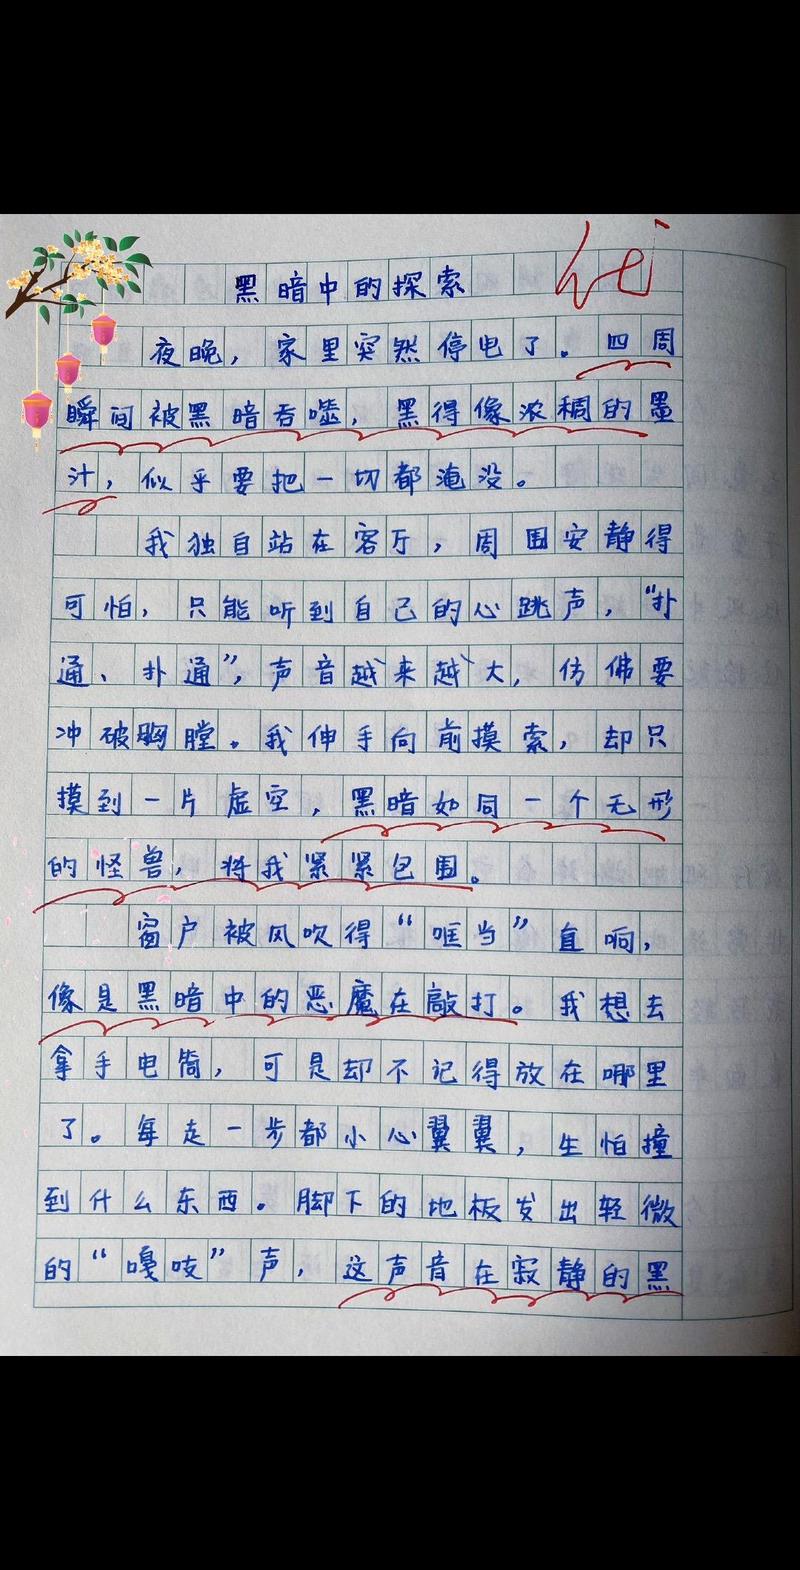 优
黑暗中的探索
夜晚，家里突然停电了。四周
瞬间被黑暗吞噬，黑得像浓稠的墨
汁，似乎要把一切都淹没。
我独自站在客厅，周围安静得
可怕，只能听到自己的心跳声，“扑
通、扑通”，声音越来越大，仿佛要
冲破胸膛。我伸手向前摸索，却只
摸到一片虚空，黑暗如同一个无形
的怪兽，将我紧紧包围。
窗户被风吹得“哐当”直响，
像是黑暗中的恶魔在敲打。我想去
拿手电筒，可是却不记得放在哪里
了。每走一步都小心翼翼，生怕撞
到什么东西。脚下的地板发出轻微
的“嘎吱”声，这声音在寂静的黑